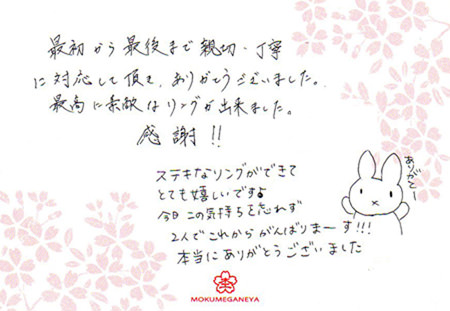 最初から最後まで親切・丁寧
に対応して頂き、ありがとうございました。
最高に素敵なリングが出来ました。
感謝!!
ステキなリングができて
とても嬉しいですよ
今日この気持ちを忘れず
2人でこれからがんばりまーす!!!
本当にありがとうございました
ありがとー
MOKUMEGANEYA